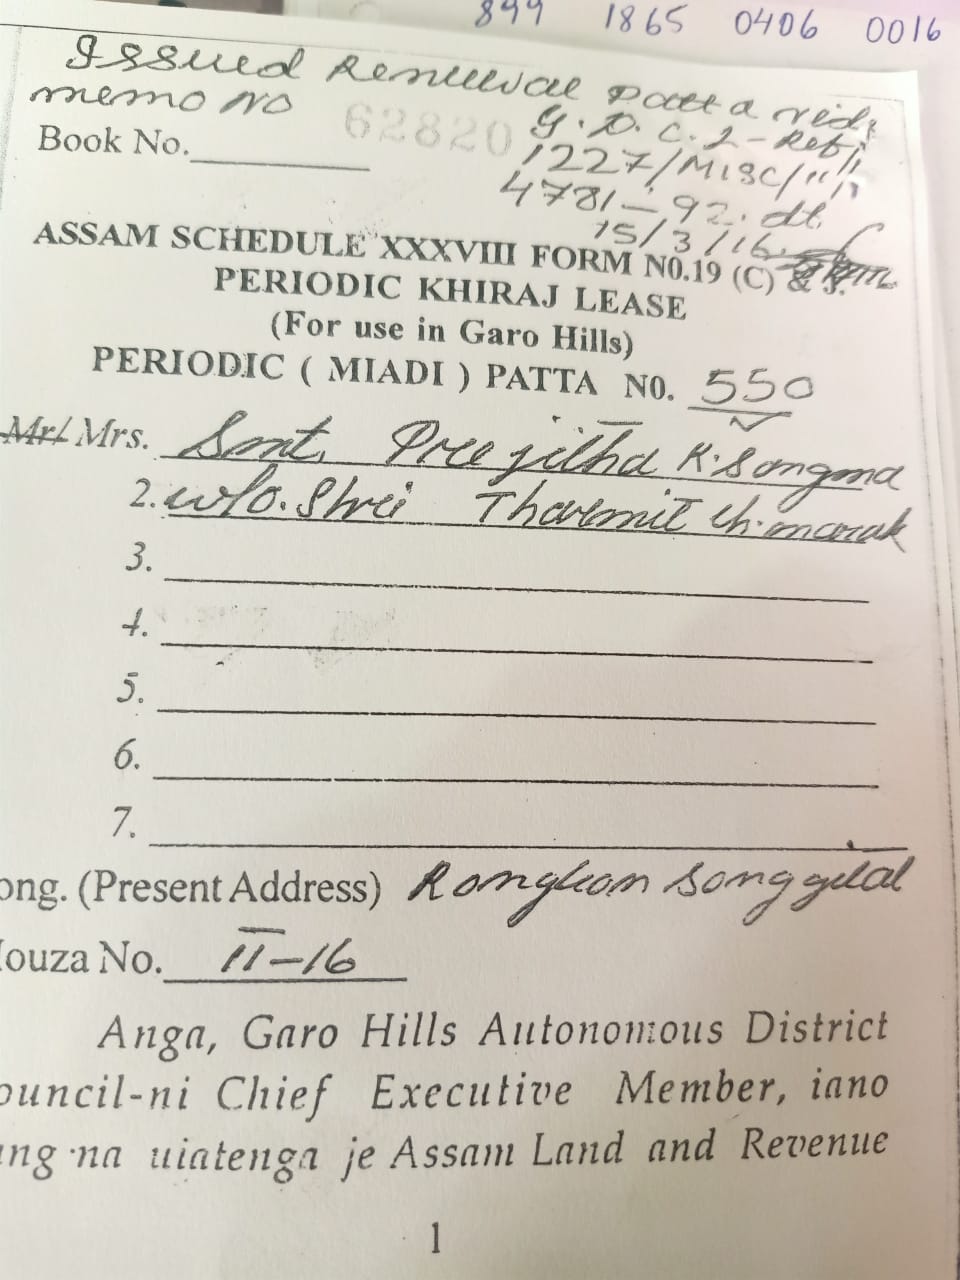 899 1865 0406 0016
Issued Renewal patta vide
memo no
G.D.C. 2-Reb/
Book No. 62820
1227/MISC/"/
4781-92. dt.
15/3/16.
ASSAM SCHEDULE XXXVIII FORM N0.19 (C)
PERIODIC KHIRAJ LEASE
(For use in Garo Hills)
PERIODIC ( MIADI ) PATTA N0. 550
Mr/ Mrs. Smt. Preejitha K. Sangma
2. w/o. Shri Tharsmit Ch. marak
3.
4.
5.
6.
7.
ong. (Present Address) Rongkhon Songgital
ouza No. II-16
Anga, Garo Hills Autonomous District
ouncil-ni Chief Executive Member, iano
ng·na uiatenga je Assam Land and Revenue
1